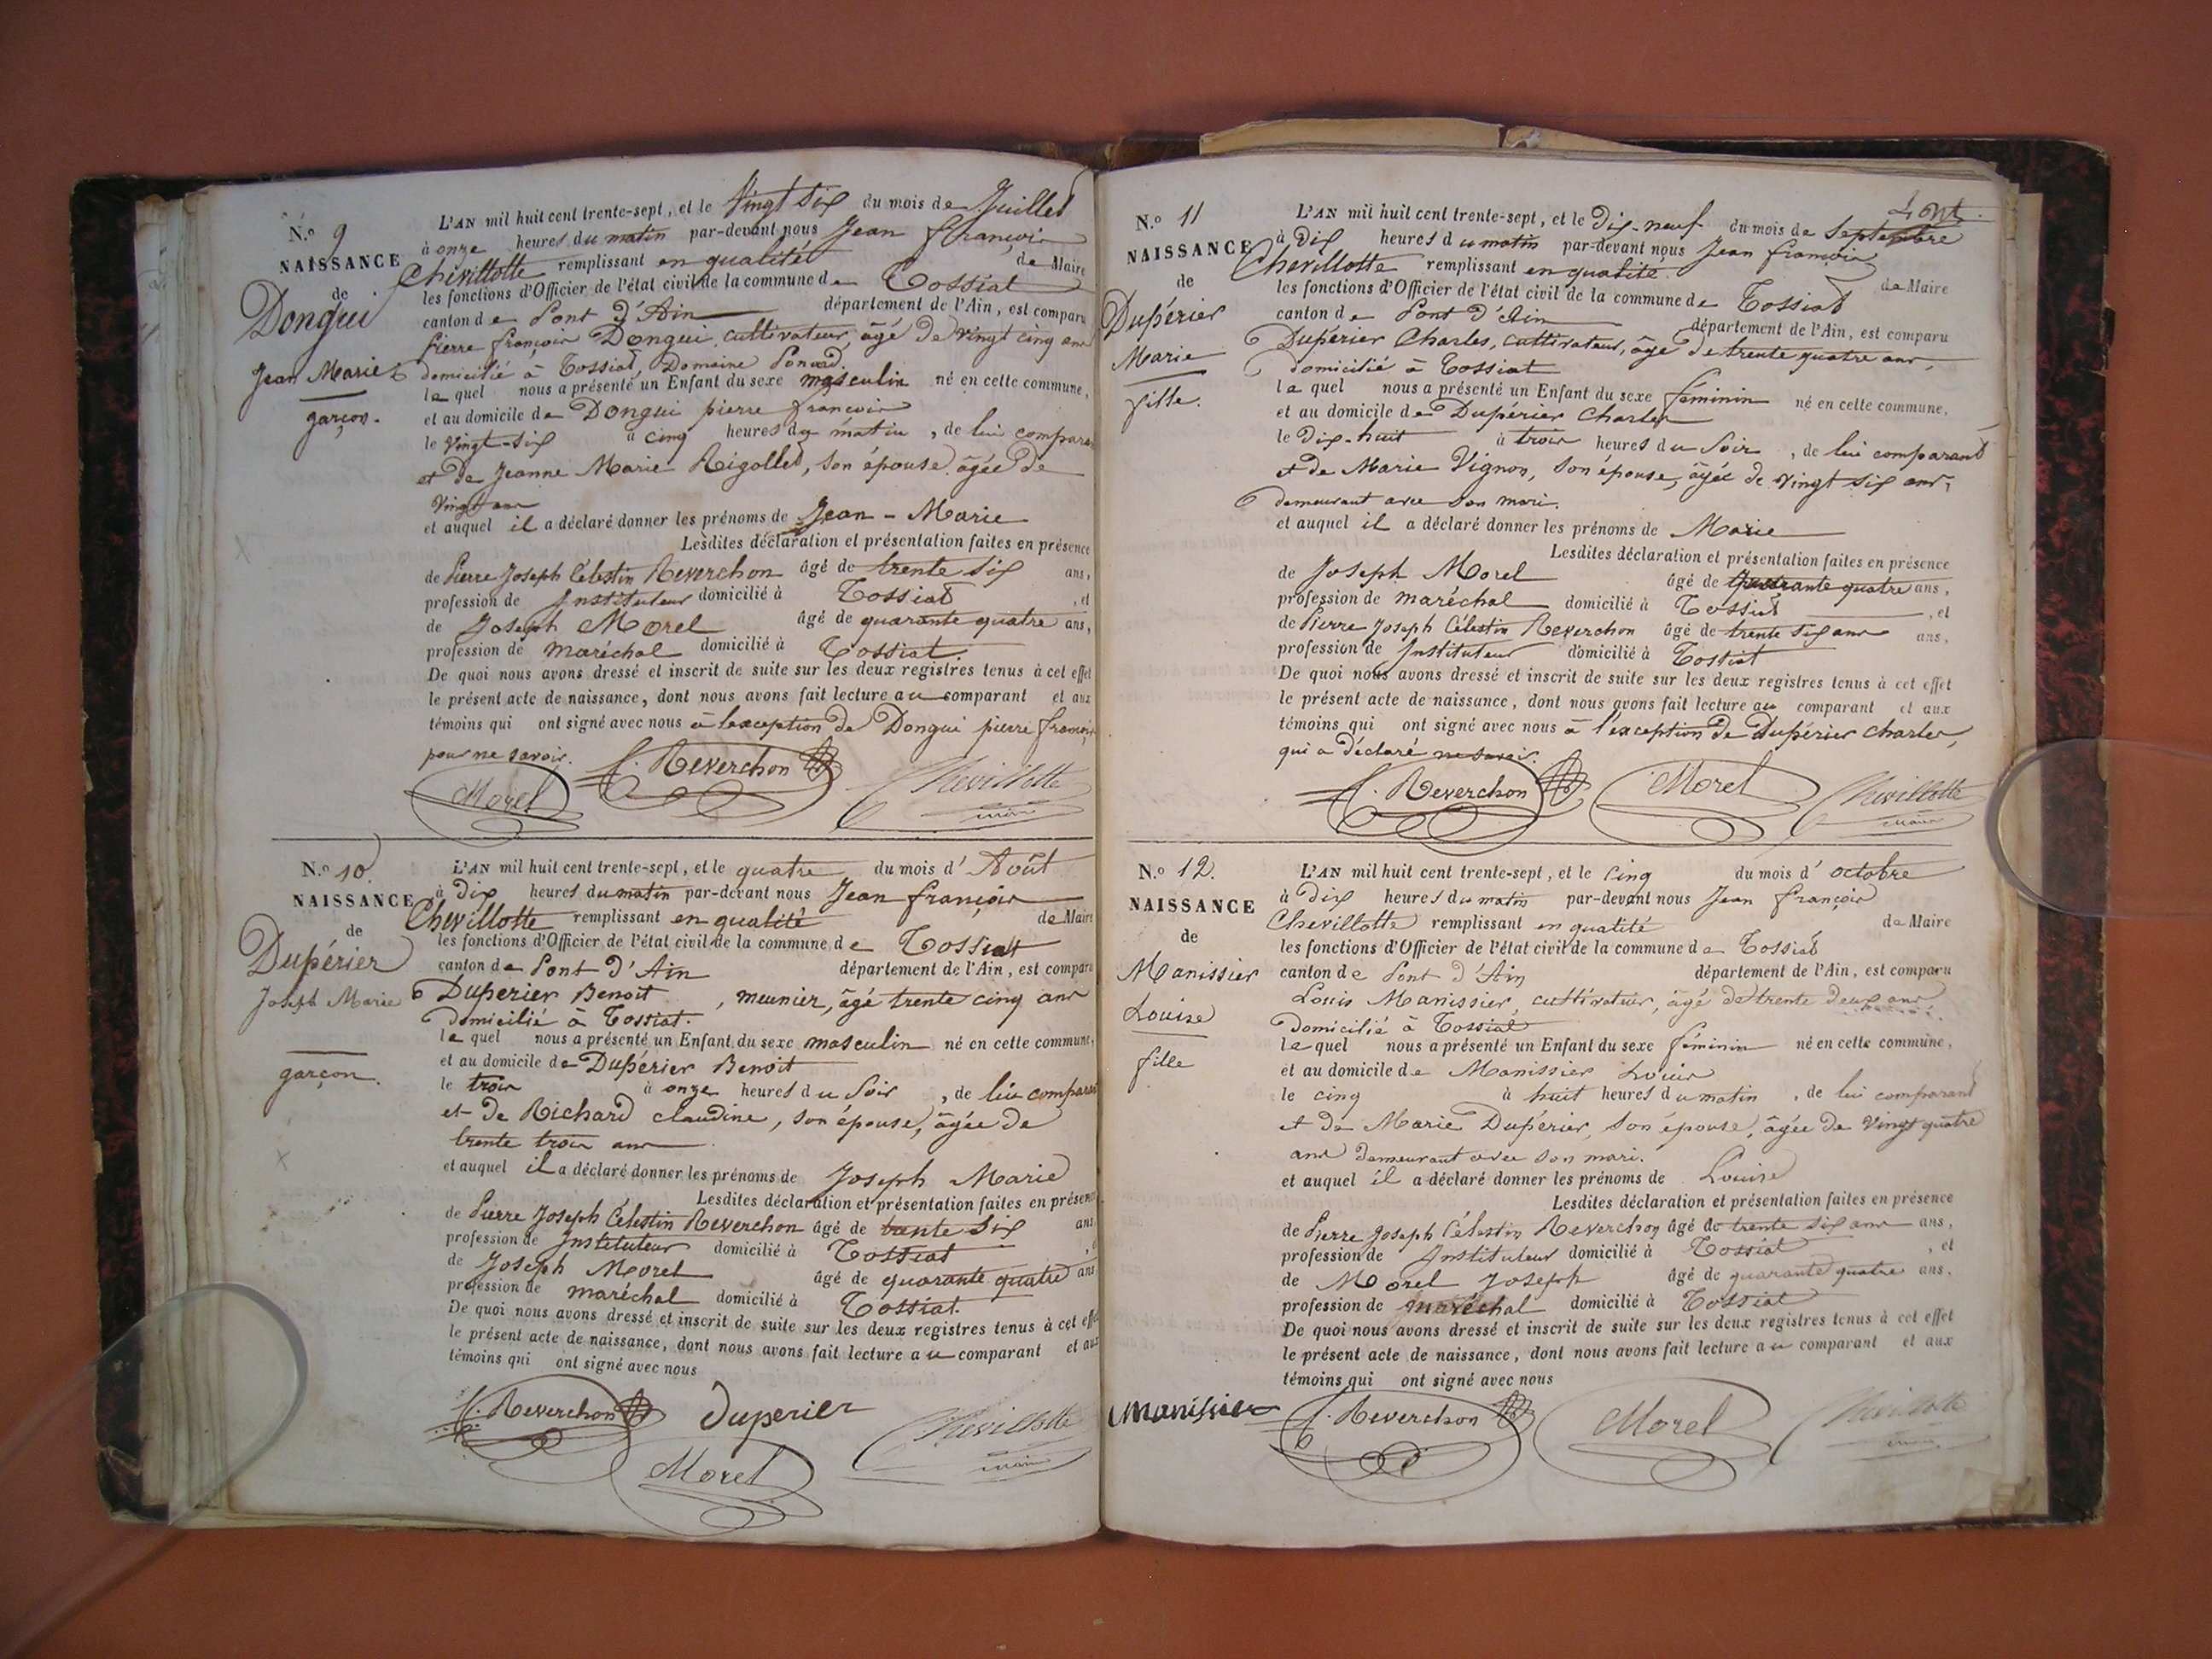 N.o 9
NAISSANCE
de
Dongui
Jean Marie
garçon.
L'AN mil huit cent trente-sept, et le Vingt six du mois de Juillet
à onze heures du matin par-devant nous Jean françois
Chevillotte remplissant en qualité de Maire
les fonctions d'Officier de l'état civil de la commune de Tossiat
canton de Pont d'Ain département de l'Ain, est comparu
pierre françois Dongui, cultivateur, âgé de vingt cinq ans
domicilié à Tossiat, Domaine
lequel nous a présenté un Enfant du sexe masculin né en cette commune,
et au domicile de Dongui pierre françois
le vingt-six à cinq heures du matin, de lui comparant
et de Jeanne Marie Rigollet, son épouse âgée de
vingt ans
et auquel il a déclaré donner les prénoms de Jean-Marie
Lesdites déclaration et présentation faites en présence
de Pierre Joseph Célestin Reverchon âgé de trente six ans,
profession de Instituteur domicilié à Tossiat, et
de Joseph Morel âgé de quarante quatre ans,
profession de maréchal domicilié à Tossiat.
De quoi nous avons dressé et inscrit de suite sur les deux registres tenus à cet effet
le présent acte de naissance, dont nous avons fait lecture au comparant et aux
témoins qui ont signé avec nous à l'exception de Dongui pierre françois
pour ne savoir.
Morel C. Reverchon Chevillotte
maire
N.o 10
NAISSANCE
de
Dupérier
Joseph Marie
garçon.
L'AN mil huit cent trente-sept, et le quatre du mois d'Août
à dix heures du matin par-devant nous Jean françois
Chevillotte remplissant en qualité de Maire
les fonctions d'Officier de l'état civil de la commune de Tossiat
canton de Pont d'Ain département de l'Ain, est comparu
Duperier Benoit, meunier, âgé trente cinq ans
domicilié à Tossiat.
lequel nous a présenté un Enfant du sexe masculin né en cette commune,
et au domicile de Dupérier Benoit
le trois à onze heures du soir, de lui comparant
et de Richard claudine, son épouse, âgée de
trente trois ans
et auquel il a déclaré donner les prénoms de Joseph Marie
Lesdites déclaration et présentation faites en présence
de Pierre Joseph Célestin Reverchon âgé de trente six ans
profession de Instituteur domicilié à Tossiat
de Joseph Morel âgé de quarante quatre ans
profession de maréchal domicilié à Tossiat.
De quoi nous avons dressé et inscrit de suite sur les deux registres tenus à cet effet
le présent acte de naissance, dont nous avons fait lecture au comparant et aux
témoins qui ont signé avec nous
C. Reverchon Duperier Chevillotte
Morel maire
N.o 11
NAISSANCE
de
Dupérier
Marie
fille.
L'AN mil huit cent trente-sept, et le dix-neuf du mois de Septembre
à dix heures du matin par-devant nous Jean françois
Chevillotte remplissant en qualité de Maire
les fonctions d'Officier de l'état civil de la commune de Tossiat
canton de Pont d'Ain département de l'Ain, est comparu
Dupérier Charles, cultivateur, âgé de trente quatre ans,
domicilié à Tossiat
lequel nous a présenté un Enfant du sexe féminin né en cette commune,
et au domicile de Dupérier Charles
le dix-huit à trois heures du soir, de lui comparant
et de Marie Vignon, son épouse, âgée de vingt six ans,
demeurant avec son mari.
et auquel il a déclaré donner les prénoms de Marie
Lesdites déclaration et présentation faites en présence
de Joseph Morel âgé de quarante quatre ans,
profession de maréchal domicilié à Tossiat, et
de Pierre Joseph Célestin Reverchon âgé de trente six ans ans,
profession de Instituteur domicilié à Tossiat
De quoi nous avons dressé et inscrit de suite sur les deux registres tenus à cet effet
le présent acte de naissance, dont nous avons fait lecture au comparant et aux
témoins qui ont signé avec nous à l'exception de Dupérier charles,
qui a déclaré ne savoir.
C. Reverchon Morel Chevillotte
maire
N.o 12.
NAISSANCE
de
Manissier
Louise
fille
L'AN mil huit cent trente-sept, et le cinq du mois d'octobre
à dix heures du matin par-devant nous Jean françois
Chevillotte remplissant en qualité de Maire
les fonctions d'Officier de l'état civil de la commune de Tossiat
canton de Pont d'Ain département de l'Ain, est comparu
Louis Manissier, cultivateur, âgé de trente deux ans
domicilié à Tossiat
lequel nous a présenté un Enfant du sexe féminin né en cette commune,
et au domicile de Manissier Louis
le cinq à huit heures du matin, de lui comparant
et de Marie Dupérier, son épouse, âgée de vingt quatre
ans demeurant avec son mari.
et auquel il a déclaré donner les prénoms de Louise
Lesdites déclaration et présentation faites en présence
de Pierre Joseph Célestin Reverchon âgé de trente six ans ans,
profession de Instituteur domicilié à Tossiat, et
de Morel Joseph âgé de quarante quatre ans.
profession de maréchal domicilié à Tossiat
De quoi nous avons dressé et inscrit de suite sur les deux registres tenus à cet effet
le présent acte de naissance, dont nous avons fait lecture au comparant et aux
témoins qui ont signé avec nous
Manissier C. Reverchon Morel Chevillotte
maire